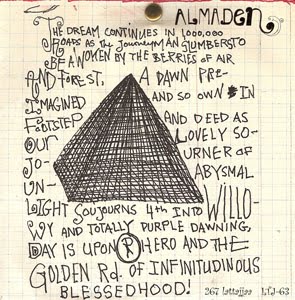 ALMADEN
THE DREAM CONTINUES IN 1,000,000
ROADS AS THE JOURNEYMAN SLUMBERS TO
BE AWOKEN BY THE BERRIES OF AIR
AND FOREST, A DAWN PRE-
IMAGINED AND SO OWN IN
FOOTSTEP AND DEED AS
OUR LOVELY SO-
JO- URNER OF
UN- ABYSMAL
LIGHT SOUJOURNS 4th INTO WILLO-
WY AND TOTALLY PURPLE DAWNING,
DAY IS UPON R HERO AND THE
GOLDEN Rd. OF INFINITUDINOUS
BLESSEDHOOD!
267 lattajjaa LTJ-63